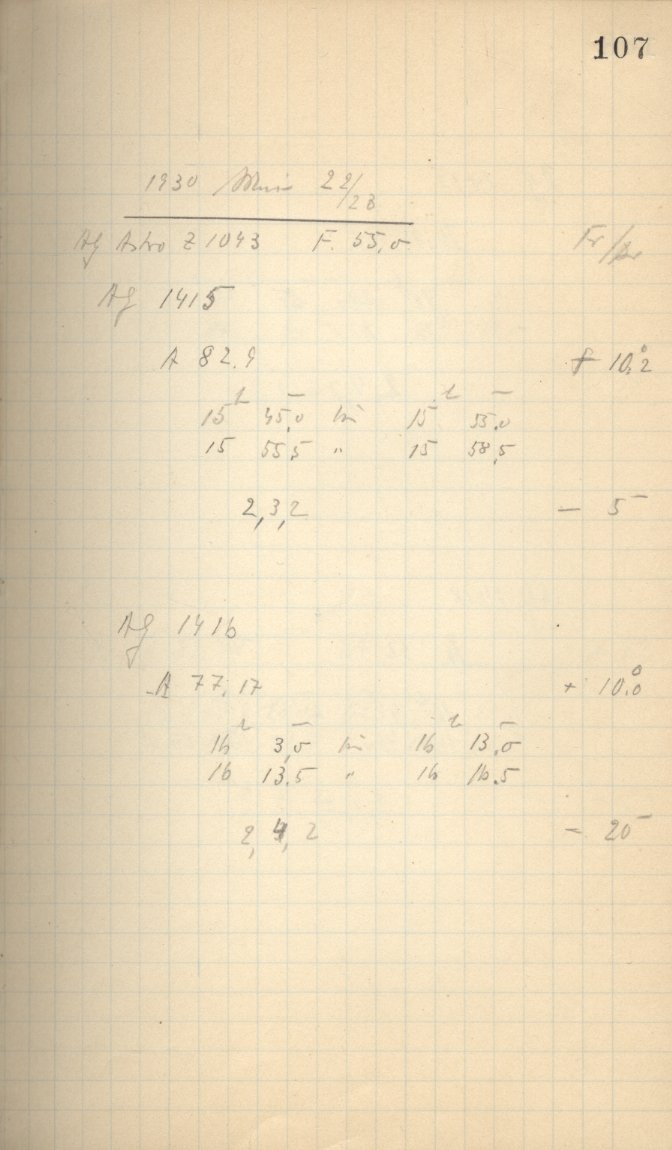 107
1930 22/23
Ag Astro Z 1043 F. 55,0 Fr/
Ag 1415
A 82.9 + 10°,2
15h 45,0 bis 15h 55,0
15 55,5 " 15 58,5
2,3,2 - 5-
Ag 1416
A 77,17 + 10°,0
16h 3,0 bis 16h 13,0
16 13.5 " 16 16.5
2,4,2 - 20-